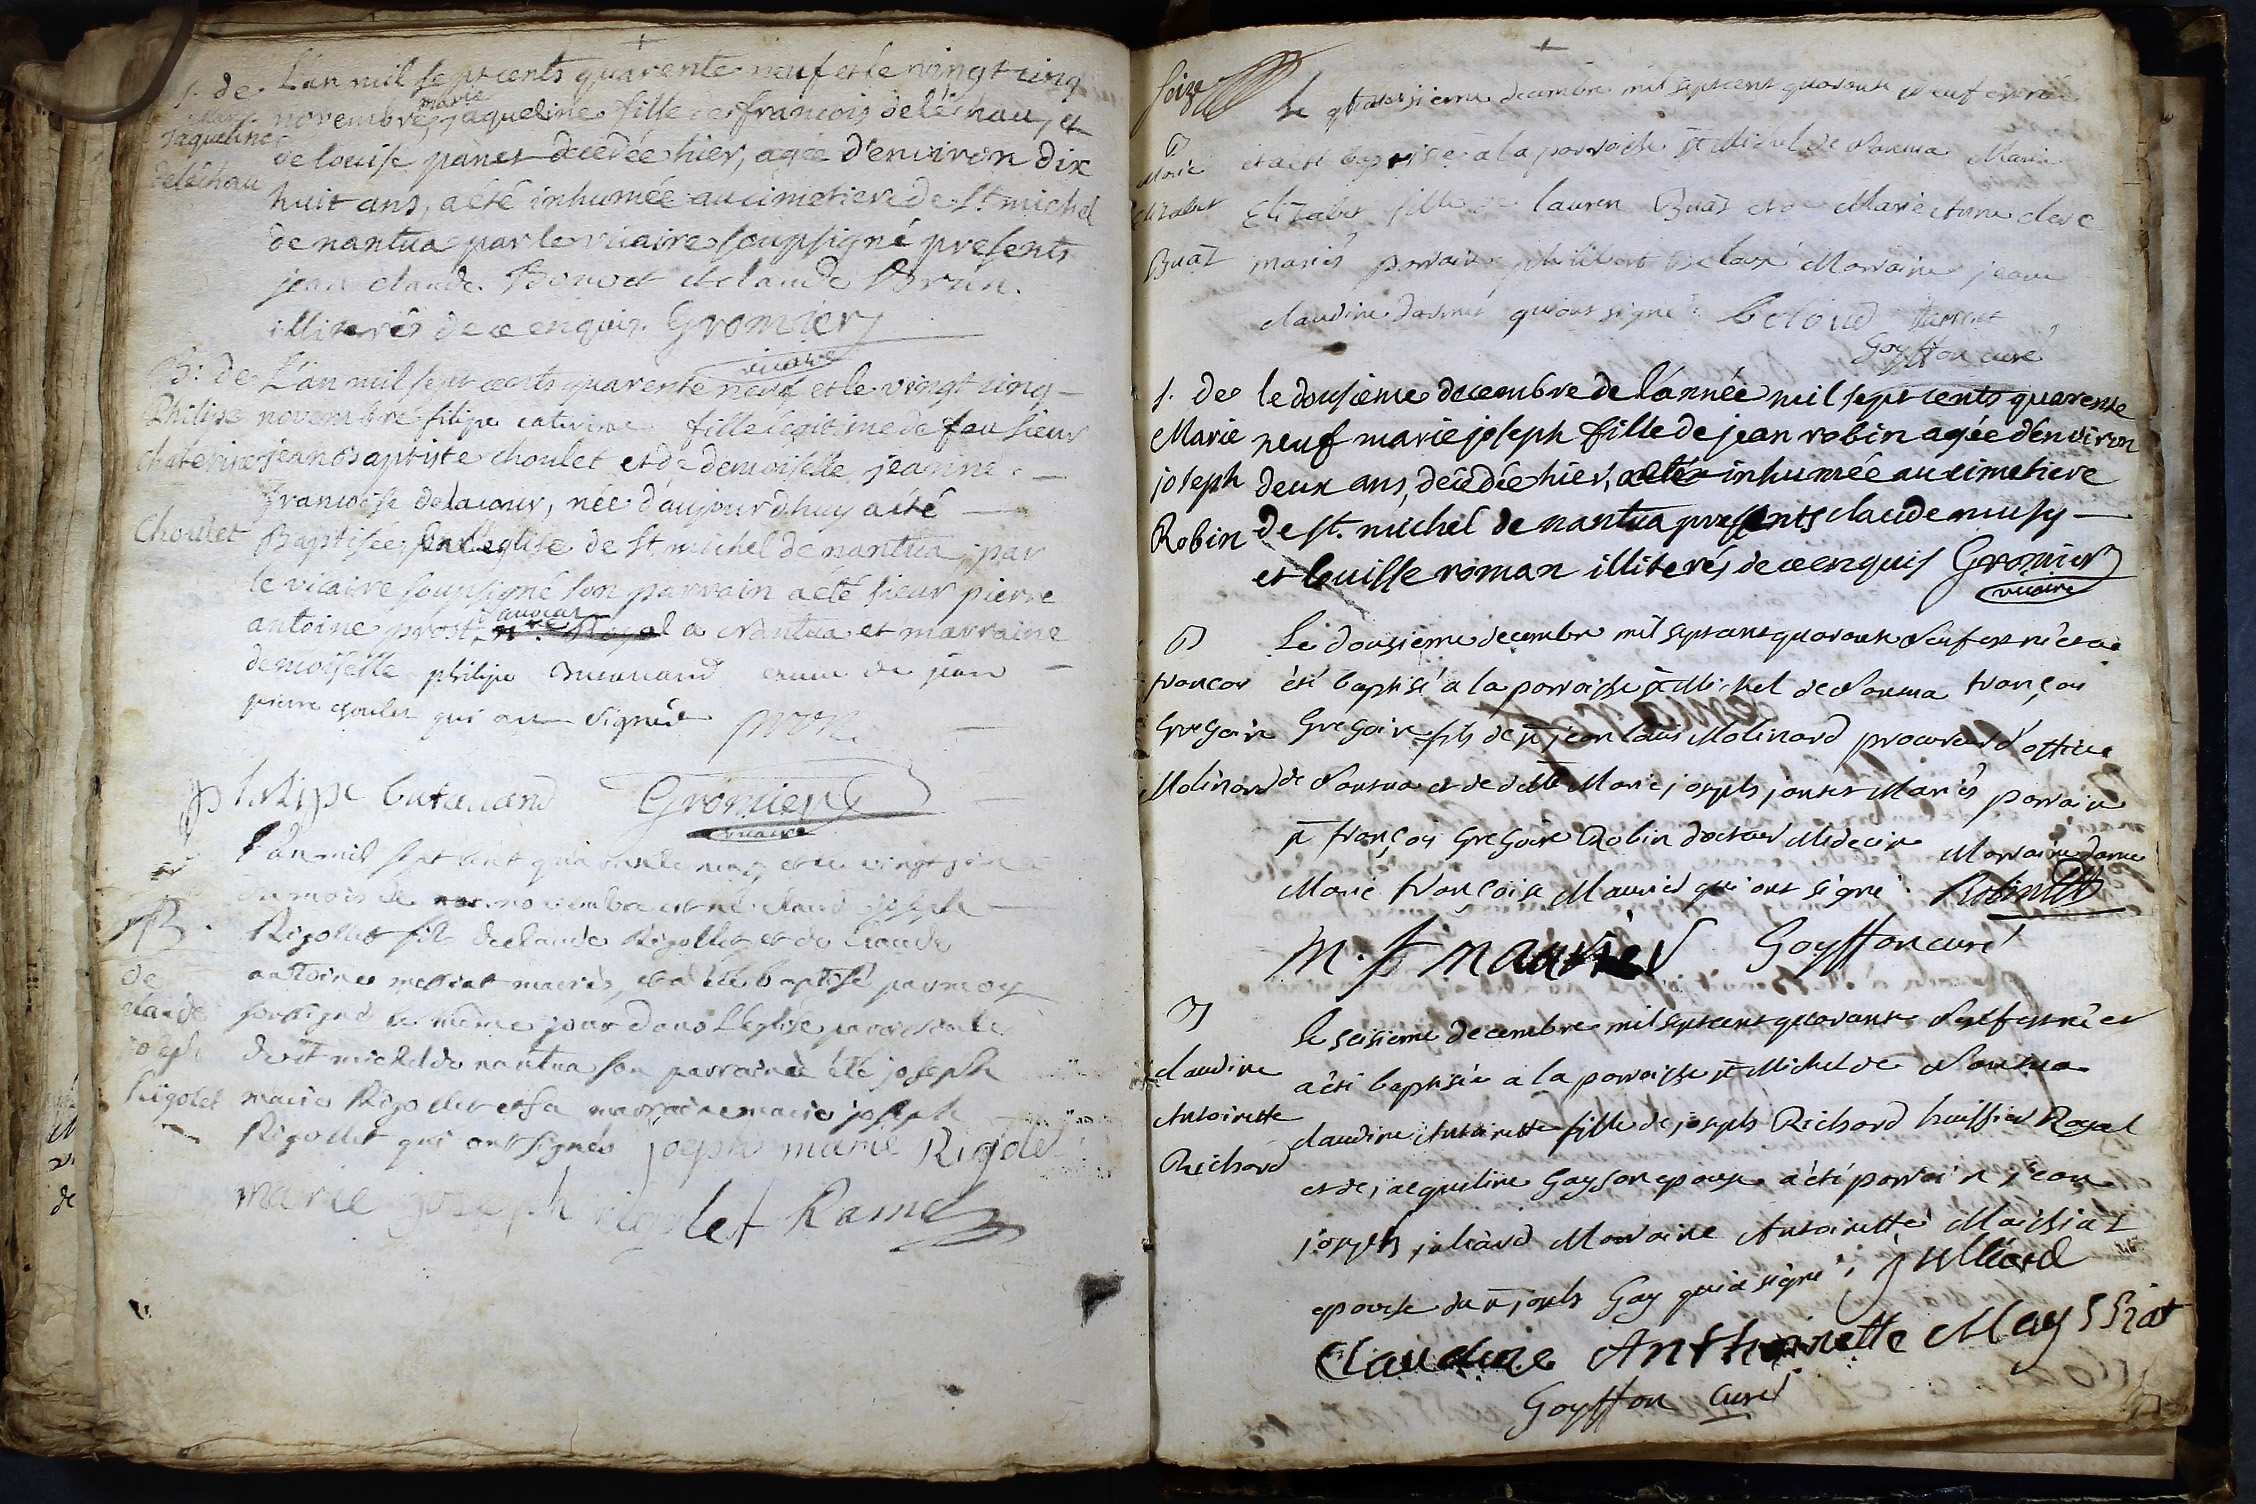 S. de
marie
Jaqueline
deléchau
L'an mil sept cents quarente neuf et le vingt cinq
novembre, marie jaqueline fille de françois deléchau, et
de louise panet decedée hier, agée d'environ dix
huit ans, a été inhumée au cimetiere de St. michel
de nantua par le vicaire soupsigné presents
jean claude Bonoct et claude Brun.
illiterés de ce enquis. Gromier
vicaire
B: de
Philipe
chaterine
Choulet
L'an mil sept cents quarente neuf et le vingt cinq
novembre filipe caterine fille legitime de feu sieur
jean baptiste choulet et de demoiselle jeanne
francoise delacour, née d'aujourdhuy a été
Baptisée, en l'eglise de St. michel de nantua, par
le vicaire soupsigné son parrain a été sieur pierre
antoine prost avocat a Nantua et marraine
demoiselle philipe
pierre choulet qui ont signé
philipe butavand Gromier
vicaire
B.
de
claude
joseph
Rigolet
L'an mil sept cent quarente neuf et le vingt
du mois de novembre est né claude joseph
Rigollet fils de claude Rigollet et de Claude
antoine messiat mariés, et a été baptisé par moy
soussigné le même jour dans l'Eglise parroissiale
de st michel de nantua son parrain a été joseph
marie Rigollet et sa marraine marie joseph
Rigollet qui ont signés joseph marie Rigolet
marie joseph rigolet Ramel
seize
B
Marie
Elizabet
Buat
Le decembre mil sept cent quarante Neuf est née
et a eté baptisée a la parroisse St Michel de Nantua Marie
Elizabet fille de lauren Buat et de Marie Anne clerc
mariés parrain philibert Marraine jeane
claudine qui ont signé.
Goyffon curé
S. de
Marie
joseph
Robin
le dousieme decembre de l'année mil sept cents quarente
neuf marie joseph fille de jean robin agée d'environ
deux ans, décedée hier, a été inhumée au cimetiere
de st. michel de nantua presents claude musy
et louisse roman illiterés de ce enquis Gromier
vicaire
B
françois
Gregoire
Molinard
Le dousieme decembre mil sept cent quarante Neuf est né et a
été baptisé a la parroisse St Michel de Nantua françois
Gregoire fils de Sr jean louis Molinard procureur d'office
de Nantua et de delle Marie joseph jantet Mariés parrain
Sr françois Gregoire Robin docteur Medecin Marraine dame
Marie françoise Maurier qui ont signé. Robin
M. f maurier Goyffon curé
B
claudine
Antoinette
Richard
le seisieme decembre mil sept cent quarante Neuf est née et
a été baptisée a la parroisse St Michel de Nantua
claudine Antoinette fille de joseph Richard huissier Royal
et de jacqueline Gayson epouse a été parrain jean
joseph juliard Marraine Antoinette Maissiat
epouse du Sr joseph Gay qui a signé. julliard
Claudine Anthoinette Mayssiat
Goyffon curé